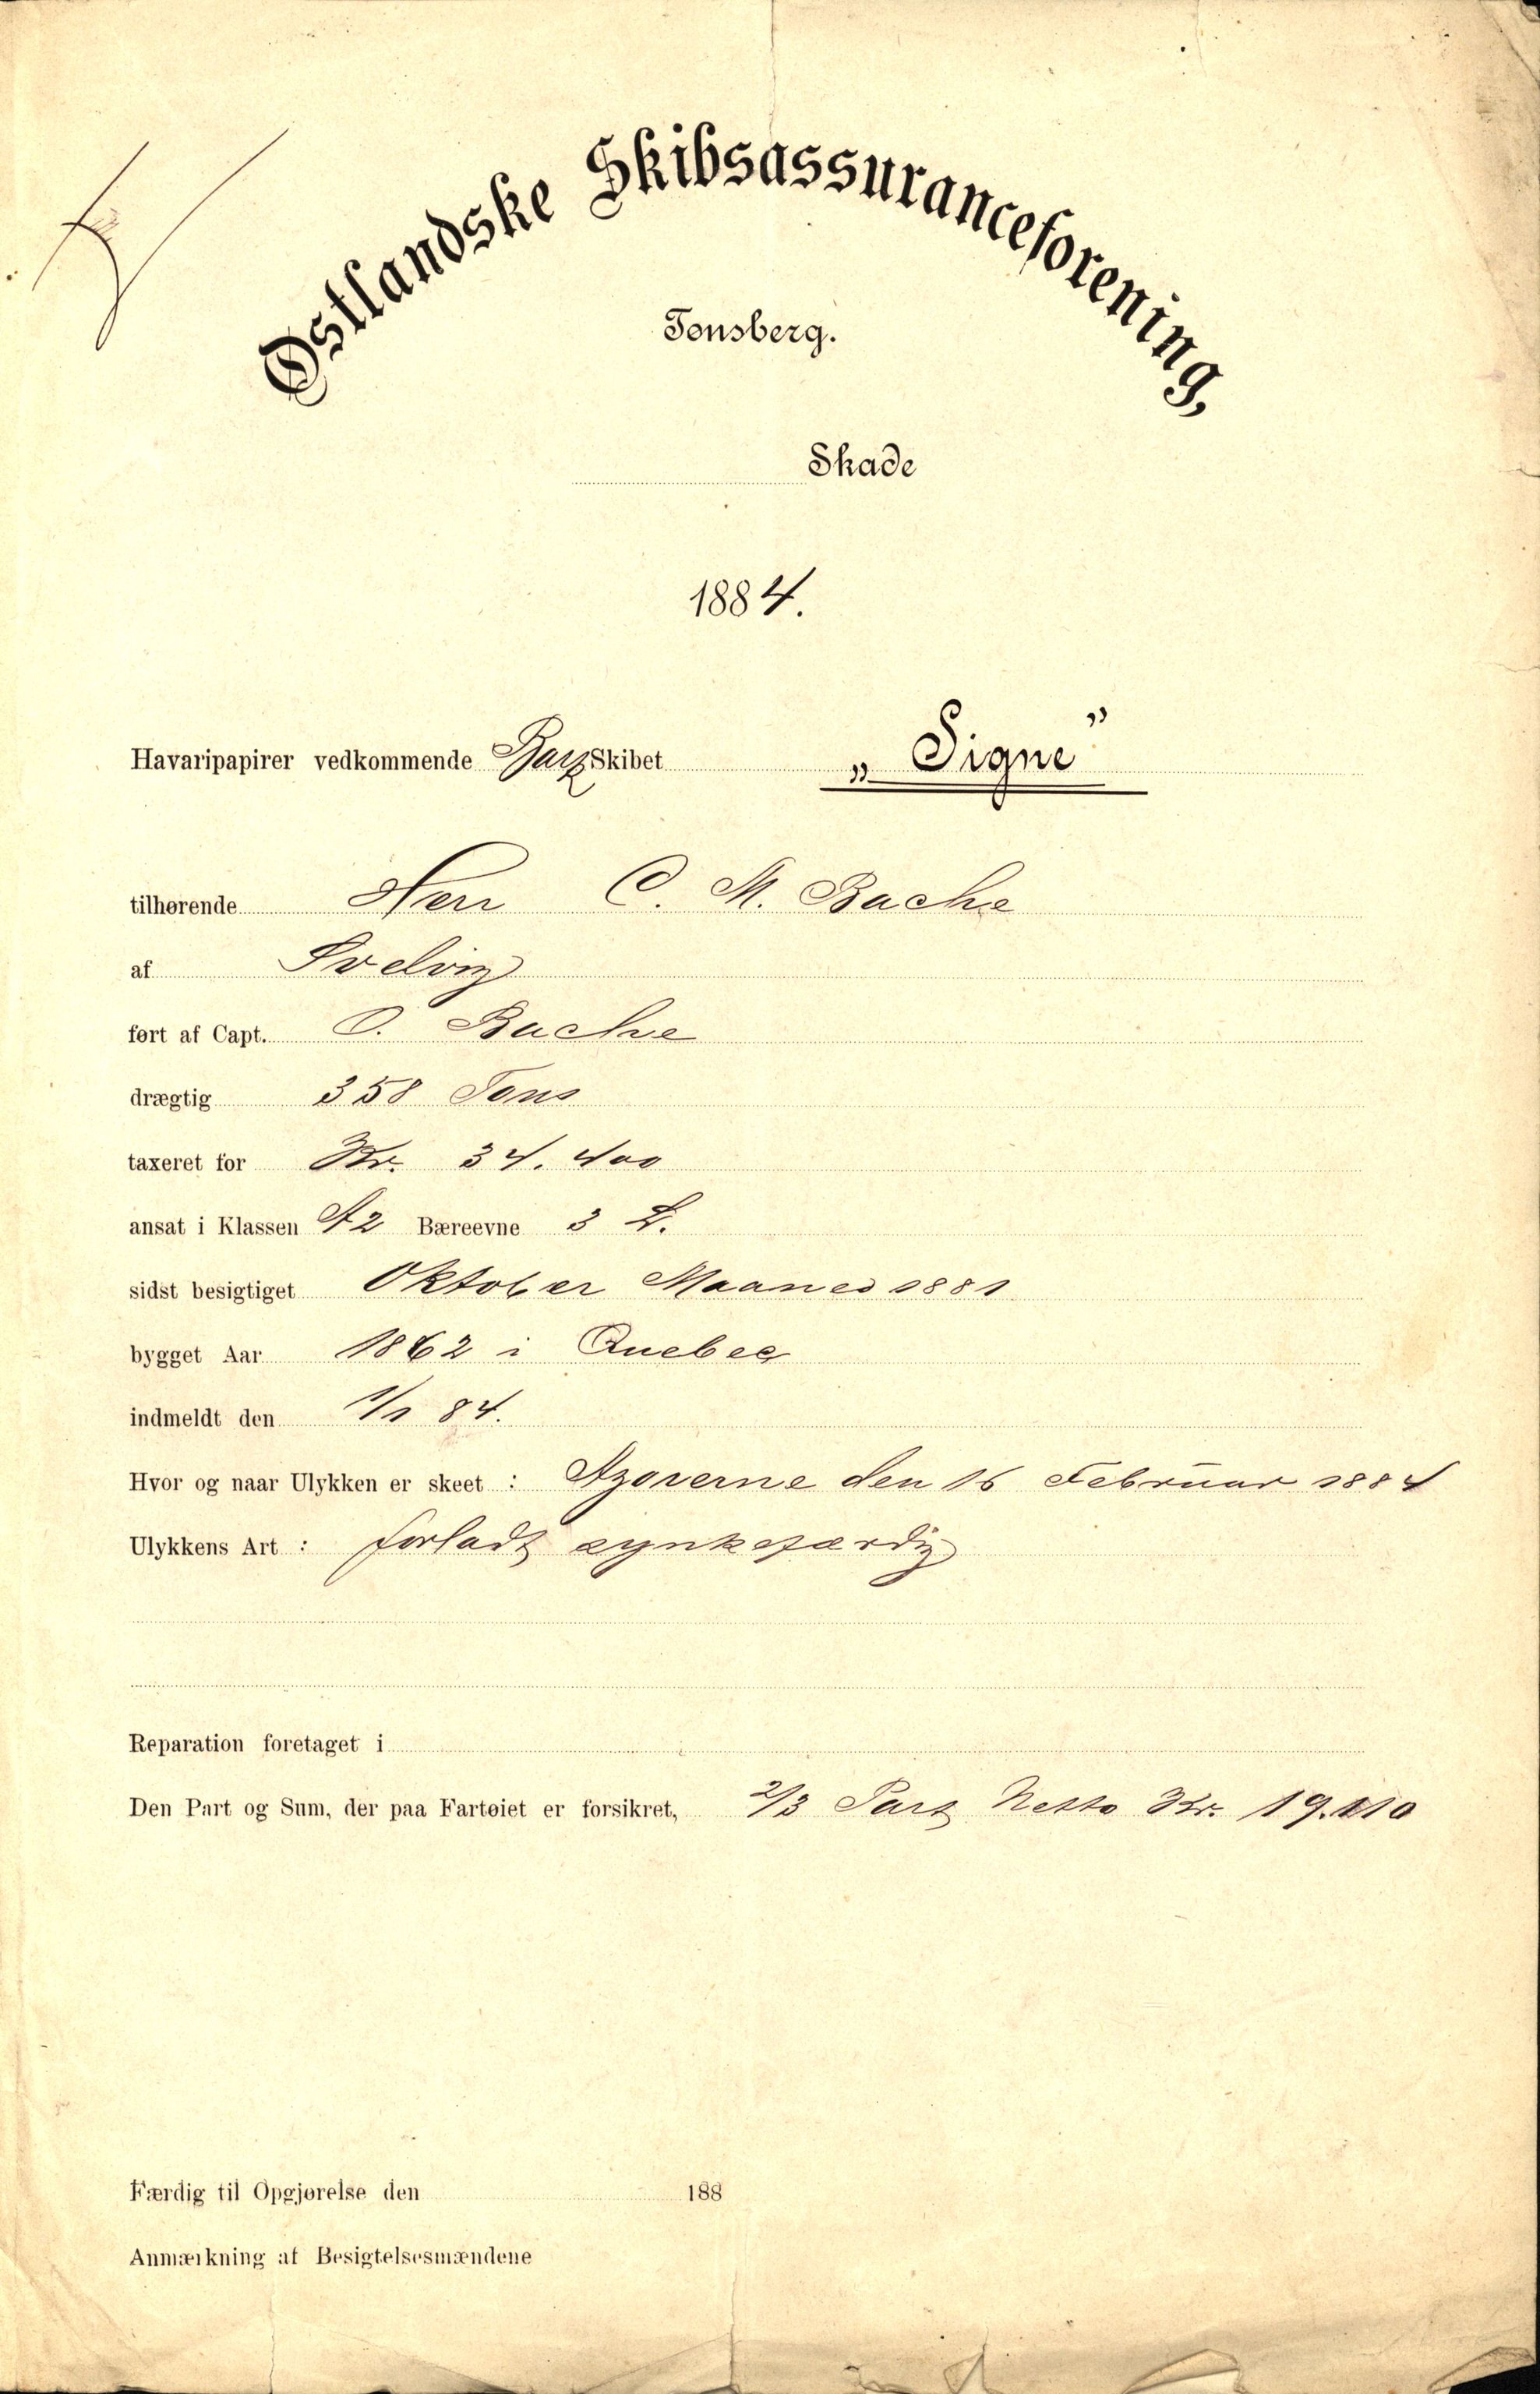 Østlandske Skibsassuranceforening,
Tønsberg.
Skade
1884.
Havaripapirer vedkommende Bark Skibet „Signe”
tilhørende Herr C. M. Bache
af Svelvig
ført af Capt. O. Bache
drægtig 358 Tons
taxeret for Kr. 34.400
ansat i Klassen A2 Bæreevne 3 L.
sidst besigtiget Oktober Maaned 1881
bygget Aar 1862 i Quebec
indmeldt den 1/1 84.
Hvor og naar Ulykken er skeet : Azorerne den 16 Februar 1884
Ulykkens Art : forladt synkefærdig
Reparation foretaget i
Den Part og Sum, der paa Fartøiet er forsikret, 2/3 Part Netto Kr. 19.110
Færdig til Opgjørelse den 188
Anmærkning af Besigtelsesmændene